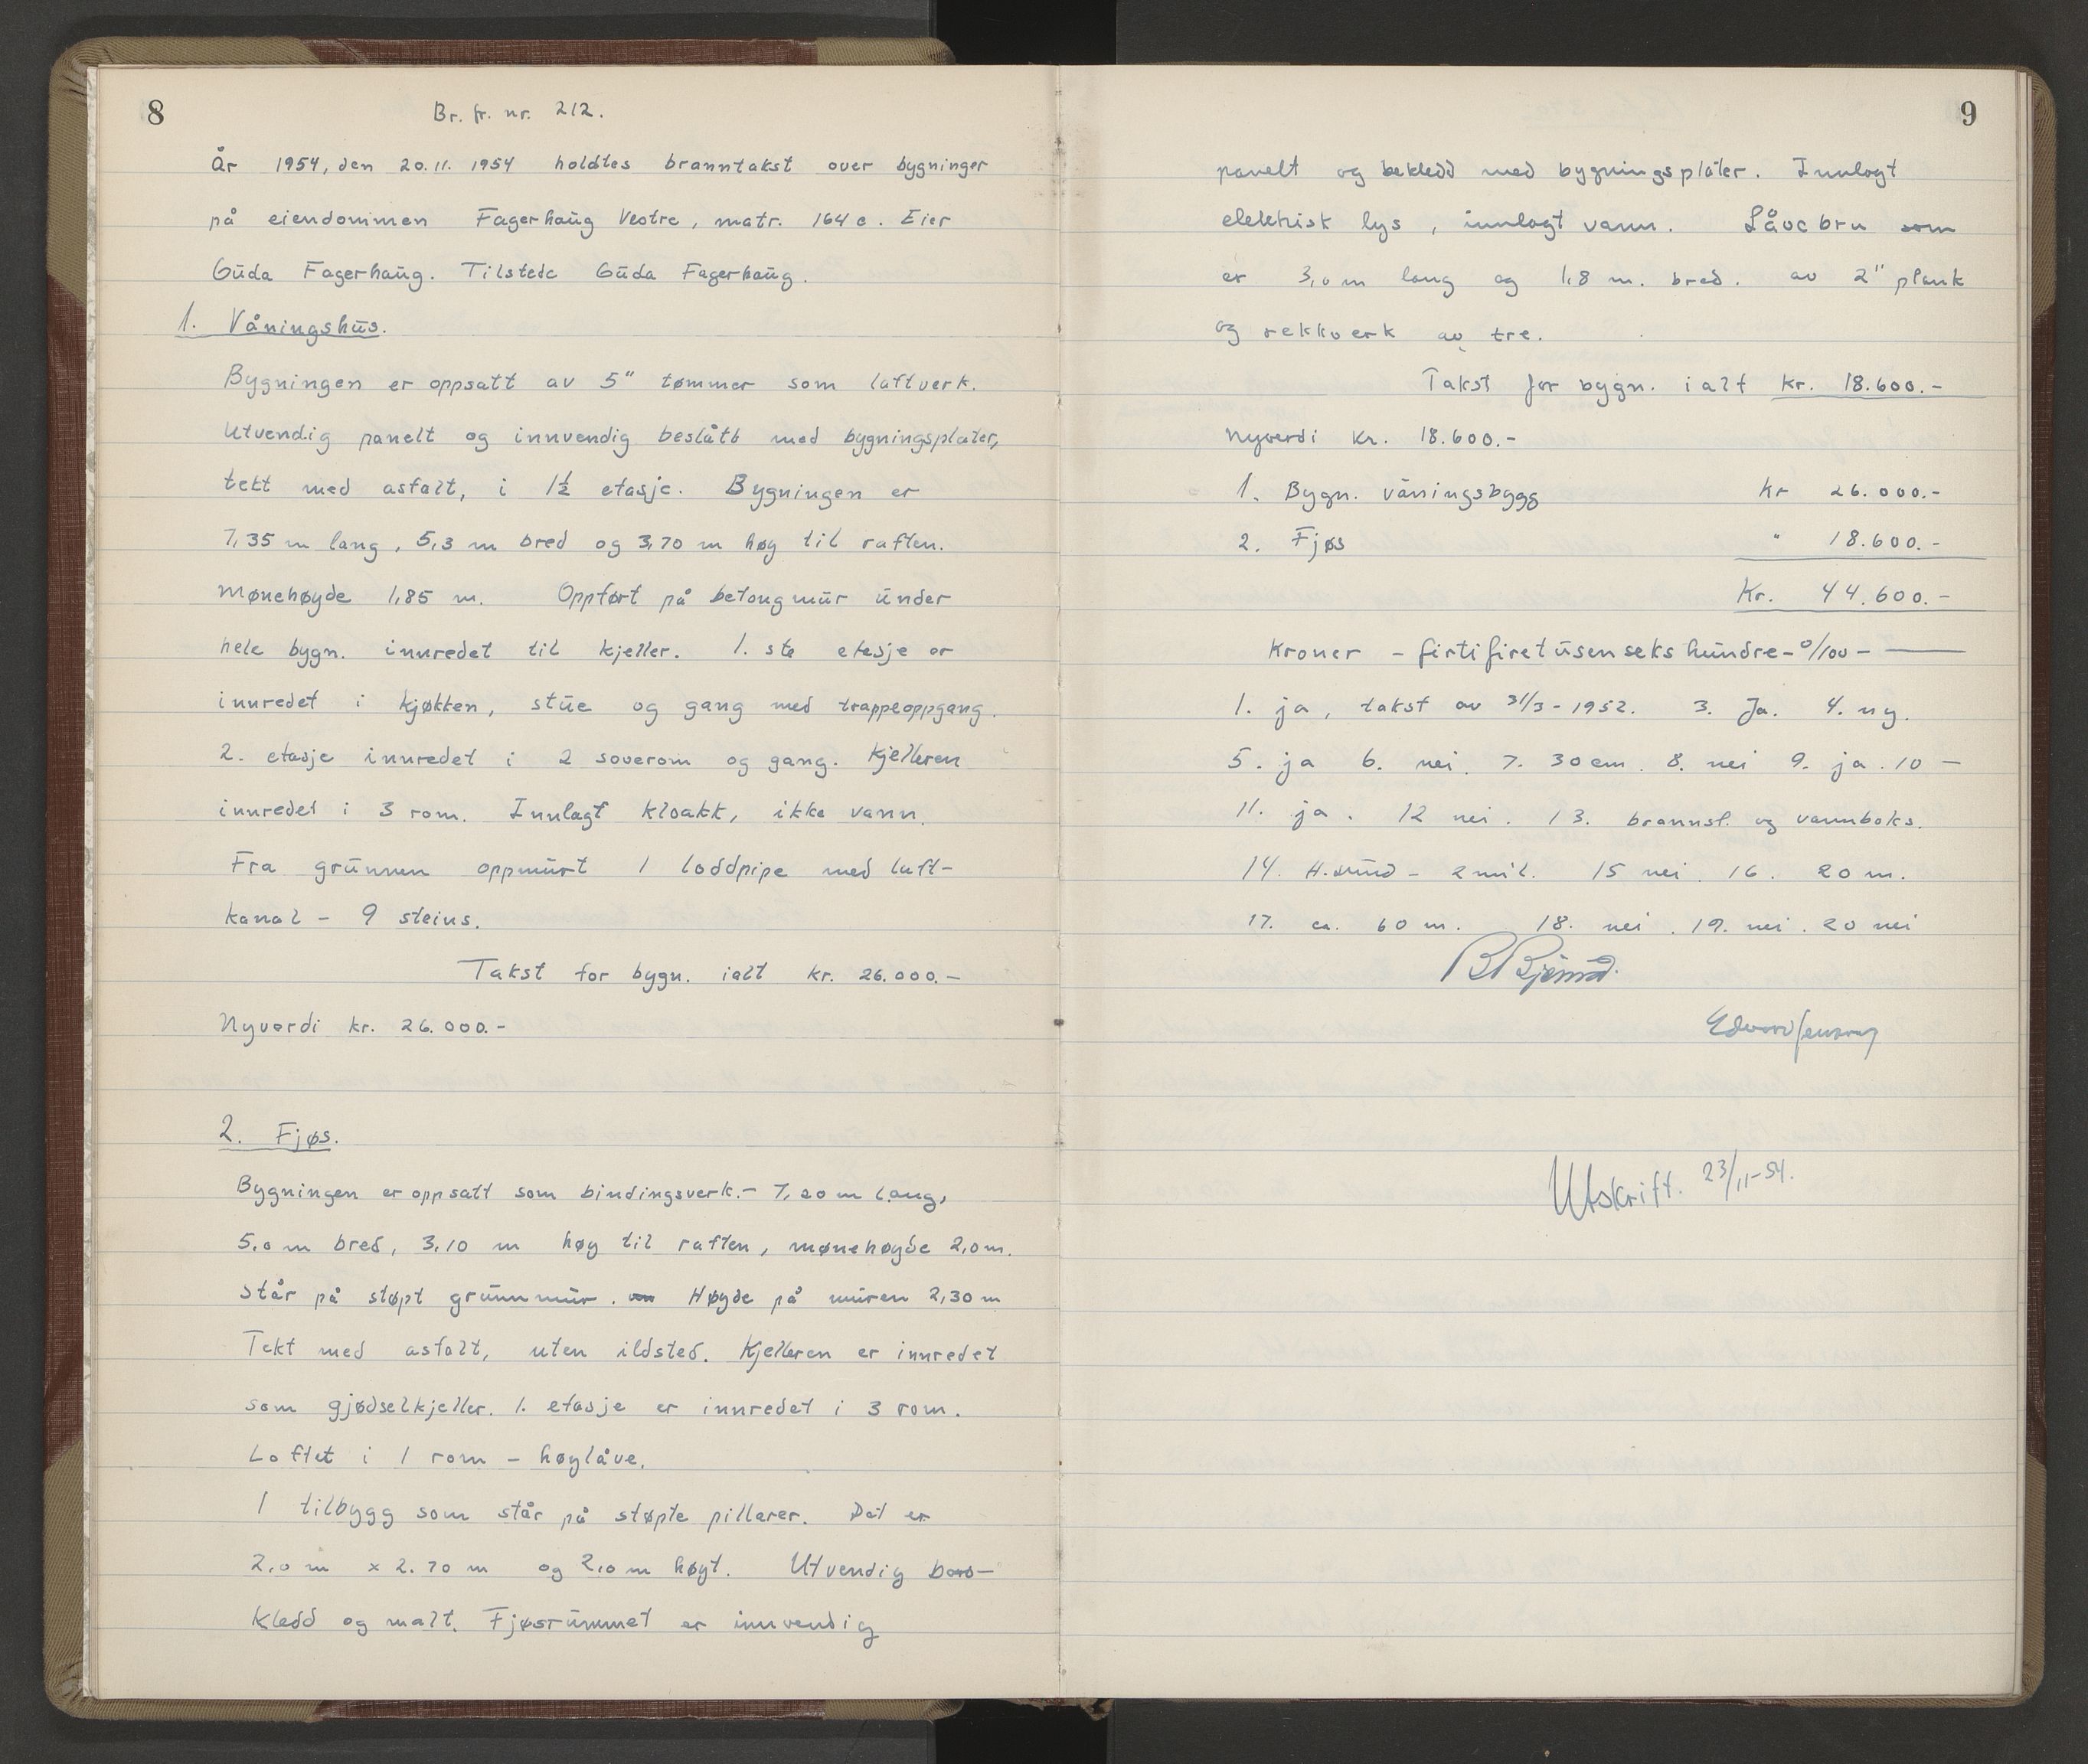 8
Br. fr. nr. 212.
År 1954, den 20.11. 1954 holdtes branntakst over bygninger
på eiendommen Fagerhaug Vestre, matr. 164 c. Eier
Guda Fagerhaug. Tilstede Guda Fagerhaug.
1. Våningshus.
Bygningen er oppsatt av 5" tømmer som laftverk.
Utvendig panelt og innvendig beslått med bygningsplater,
tekt med asfalt, i 1½ etasje. Bygningen er
7,35 m lang, 5,3 m bred og 3,70 m høg til raften.
Mønehøyde 1,85 m. Oppført på betongmur under
hele bygn. innredet til kjeller. 1. ste etasje er
innredet i kjøkken, stue og gang med trappeoppgang.
2. etasje innredet i 2 soverom og gang. Kjelleren
innredet i 3 rom. Innlagt kloakk, ikke vann.
Fra grunnen oppmurt 1 loddpipe med luft-
kanal - 9 steins.
Takst for bygn. ialt kr. 26.000.-
Nyverdi kr. 26.000.-
2. Fjøs.
Bygningen er oppsatt som bindingsverk.- 7,20 m lang,
5,0 m bred, 3,10 m høy til raften, mønehøyde 2,0 m.
Står på støpt grunnmur. Høyde på muren 2,30 m
Tekt med asfalt, uten ildsted. Kjelleren er innredet
som gjødselkjeller. 1. etasje er innredet i 3 rom.
Loftet i 1 rom - høylåve.
1 tilbygg som står på støpte pillarer. Det er
2,0 m x 2.70 m og 2,0 m høgt. Utvendig bord-
kledd og malt. Fjøsrummet er innvendig
9
panelt og bekledd med bygningsplater. Innlagt
elektrisk lys, innlagt vann. Låvebru som
er 3,0 m lang og 1,8 m. bred. av 2" plank
og rekkverk av tre.
Takst for bygn. ialt kr. 18.600.-
Nyverdi kr. 18.600.-
1. Bygn. våningsbygg Kr 26.000.-
2. Fjøs " 18.600.-
Kr. 44.600.-
Kroner - firtifiretusensekshundre - 0/100 -
1. ja, takst av 31/3 - 1952. 3. Ja. 4. ny.
5. ja 6. nei. 7. 30 cm. 8. nei 9. ja. 10 -
11. ja. 12 nei. 13. brannsl. og vannboks.
14. H.sund - 2 mil. 15 nei. 16. 20 m.
17. ca. 60 m. 18. nei. 19. nei. 20 nei
Utskrift. 23/11-54.